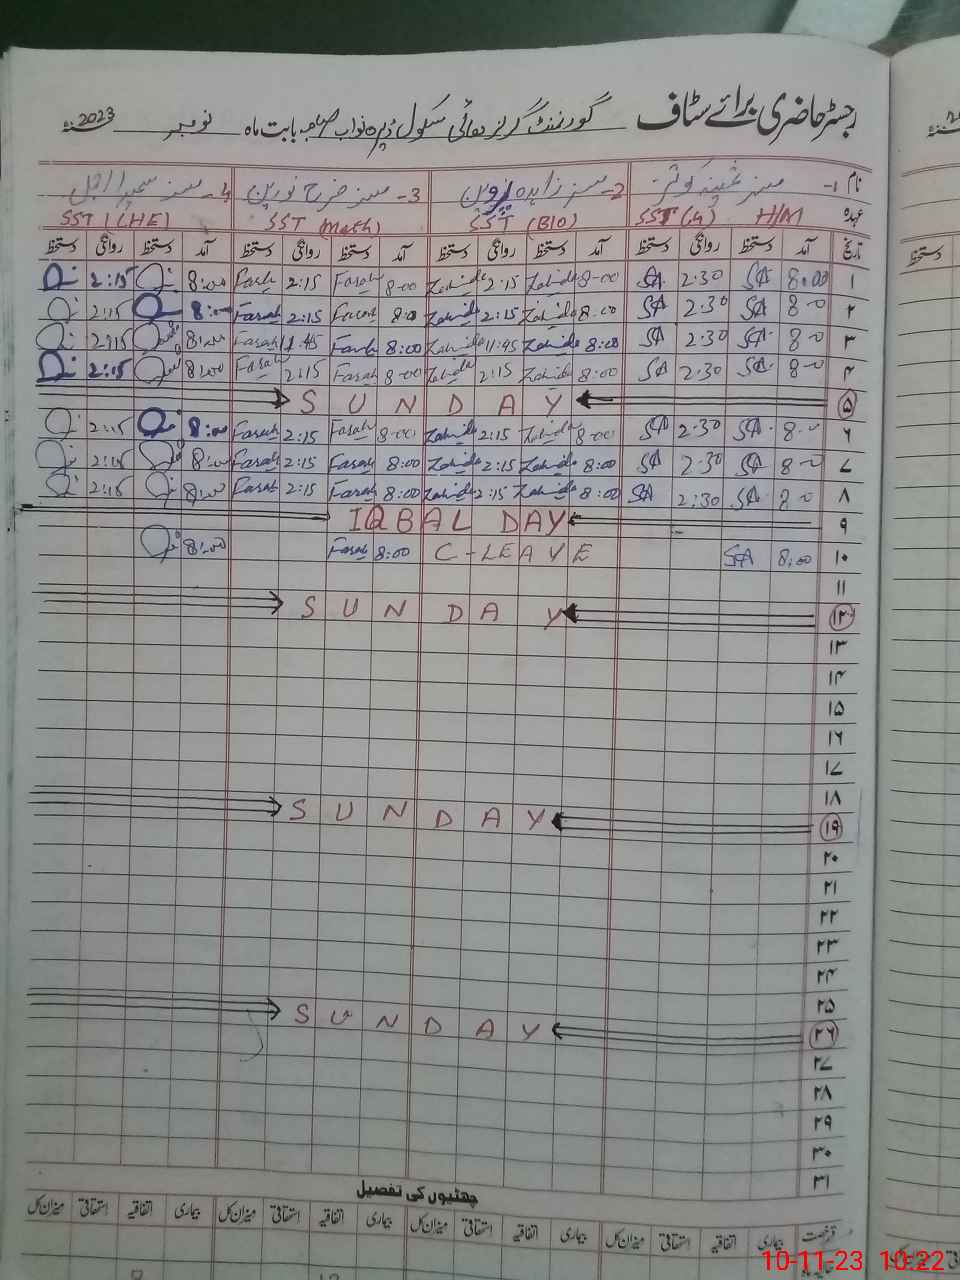 رجسٹر حاضری برائے سٹاف گورنمنٹ گرلز ہائی سکول ڈیرہ نواب صاحب بابت ماہ نومبر 2023
نام 1- مسز ثمینہ کوثر 2- مسز زاہدہ پروین 3- مسز فرح نورین 4- مسز سمیرا
عہدہ H/M SST (G) SST (BIO) SST (Math) SST (HE)
تاریخ آمد دستخط روانگی دستخط آمد دستخط روانگی دستخط آمد دستخط روانگی دستخط آمد دستخط روانگی دستخط
۱ 8:00 SA 2:30 SA 8-00 Zahida 2:15 Zahida 8-00 Farah 2:15 Farah 8:00 2:15
۲ 8-0 SA 2:30 SA 8:00 Zahida 2:15 Zahida 8:0 Farah 2:15 Farah 8:00 2:15
۳ 8-0 SA 2:30 SA 8:00 Zahida 11:45 Zahida 8:00 Farah 11:45 Farah 8:00 2:15
۴ 8-0 SA 2:30 SA 8:00 Zahida 2:15 Zahida 8-00 Farah 2:15 Farah 8:00 2:15
۵ SUNDAY
۶ 8-0 SA 2:30 SA 8-00 Zahida 2:15 Zahida 8-00 Farah 2:15 Farah 8:00 2:15
۷ 8-0 SA 2:30 SA 8:00 Zahida 2:15 Zahida 8:00 Farah 2:15 Farah 8:00 2:15
۸ 8-0 SA 2:30 SA 8:00 Zahida 2:15 Zahida 8:00 Farah 2:15 Farah 8:00 2:15
۹ IQBAL DAY
۱۰ 8:00 SA C-LEAVE 8:00 Farah 8:00
۱۱
۱۲ SUNDAY
۱۳
۱۴
۱۵
۱۶
۱۷
۱۸
۱۹ SUNDAY
۲۰
۲۱
۲۲
۲۳
۲۴
۲۵
۲۶ SUNDAY
۲۷
۲۸
۲۹
۳۰
۳۱
چھٹیوں کی تفصیل
رخصت بیماری اتفاقیہ استحقاقی میزان کل بیماری اتفاقیہ استحقاقی میزان کل بیماری اتفاقیہ استحقاقی میزان کل بیماری اتفاقیہ استحقاقی میزان کل
10-11-23 10:22